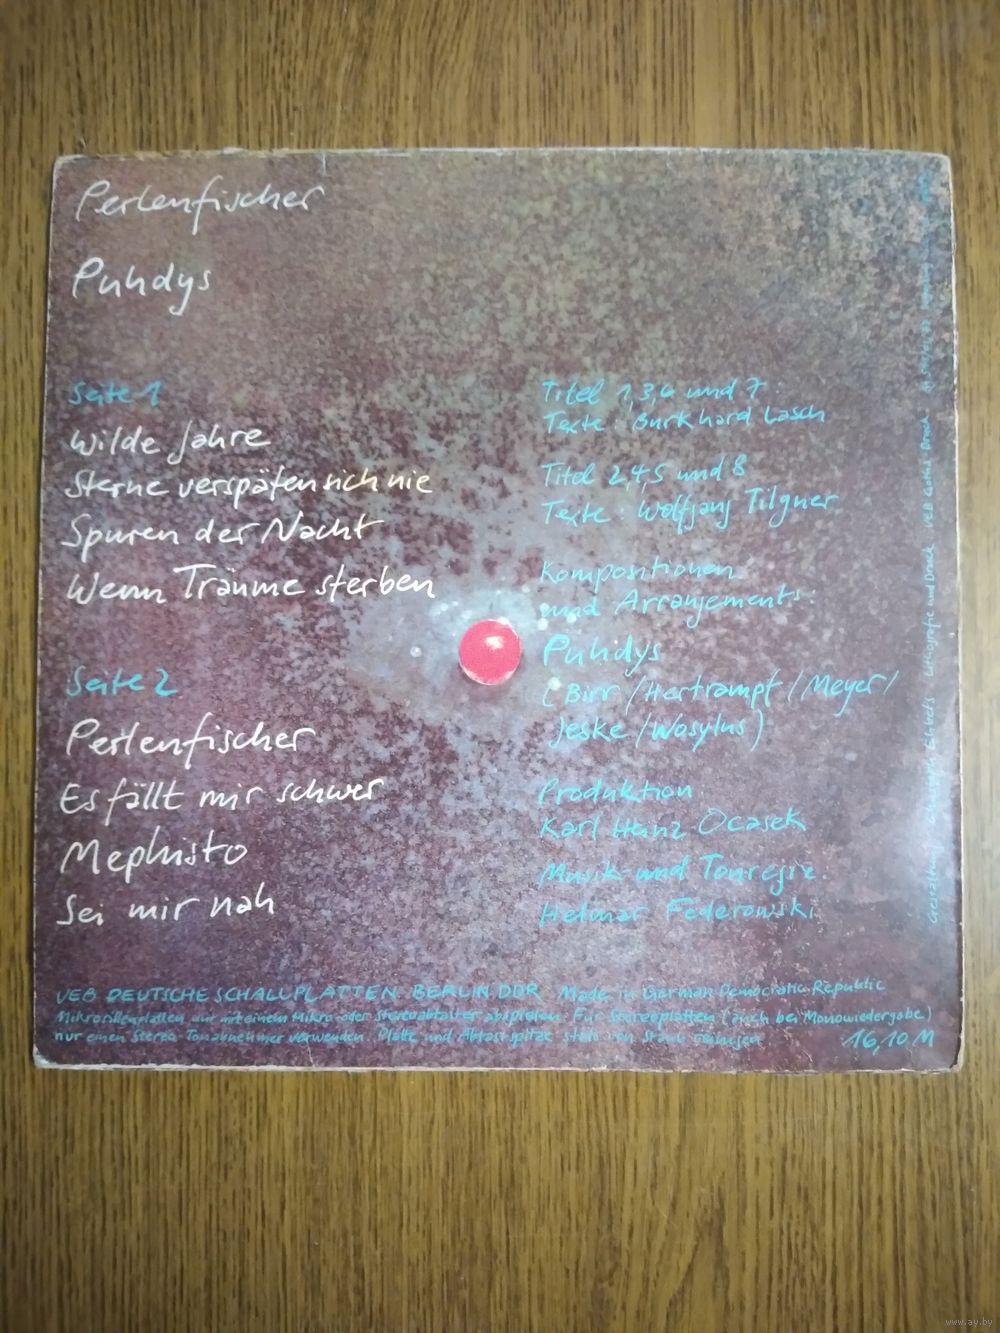 Perlenfischer
Puhdys
Seite 1
Wilde Jahre
Sterne verspäten sich nie
Spuren der Nacht
Wenn Träume sterben
Seite 2
Perlenfischer
Es fällt mir schwer
Mephisto
Sei mir nah
Titel 1,3,6 und 7:
Texte: Burkhard Lasch
Titel 2,4,5 und 8
Texte: Wolfgang Tilgner
Kompositionen
und Arrangements:
Puhdys
(Birr/Hertrampf/Meyer/
Jeske/Wosylus)
Produktion:
Karl Heinz Ocasek
Musik und Tonregie:
Helmar Federowski
VEB DEUTSCHE SCHALLPLATTEN BERLIN DDR Made in German Democratic Republic
Mikrorillenplatten nur mit einem Mikro- oder Stereoabtaster abspielen. Für Stereoplatten (auch bei Monowiedergabe)
nur einen Stereo-Tonabnehmer verwenden. Platte und Abtastspitze stets von Staub reinigen
16,10 M
Gestaltung: Christoph Ehbets Lithografie und Druck VEB Gotha-Druck
www.ay.by